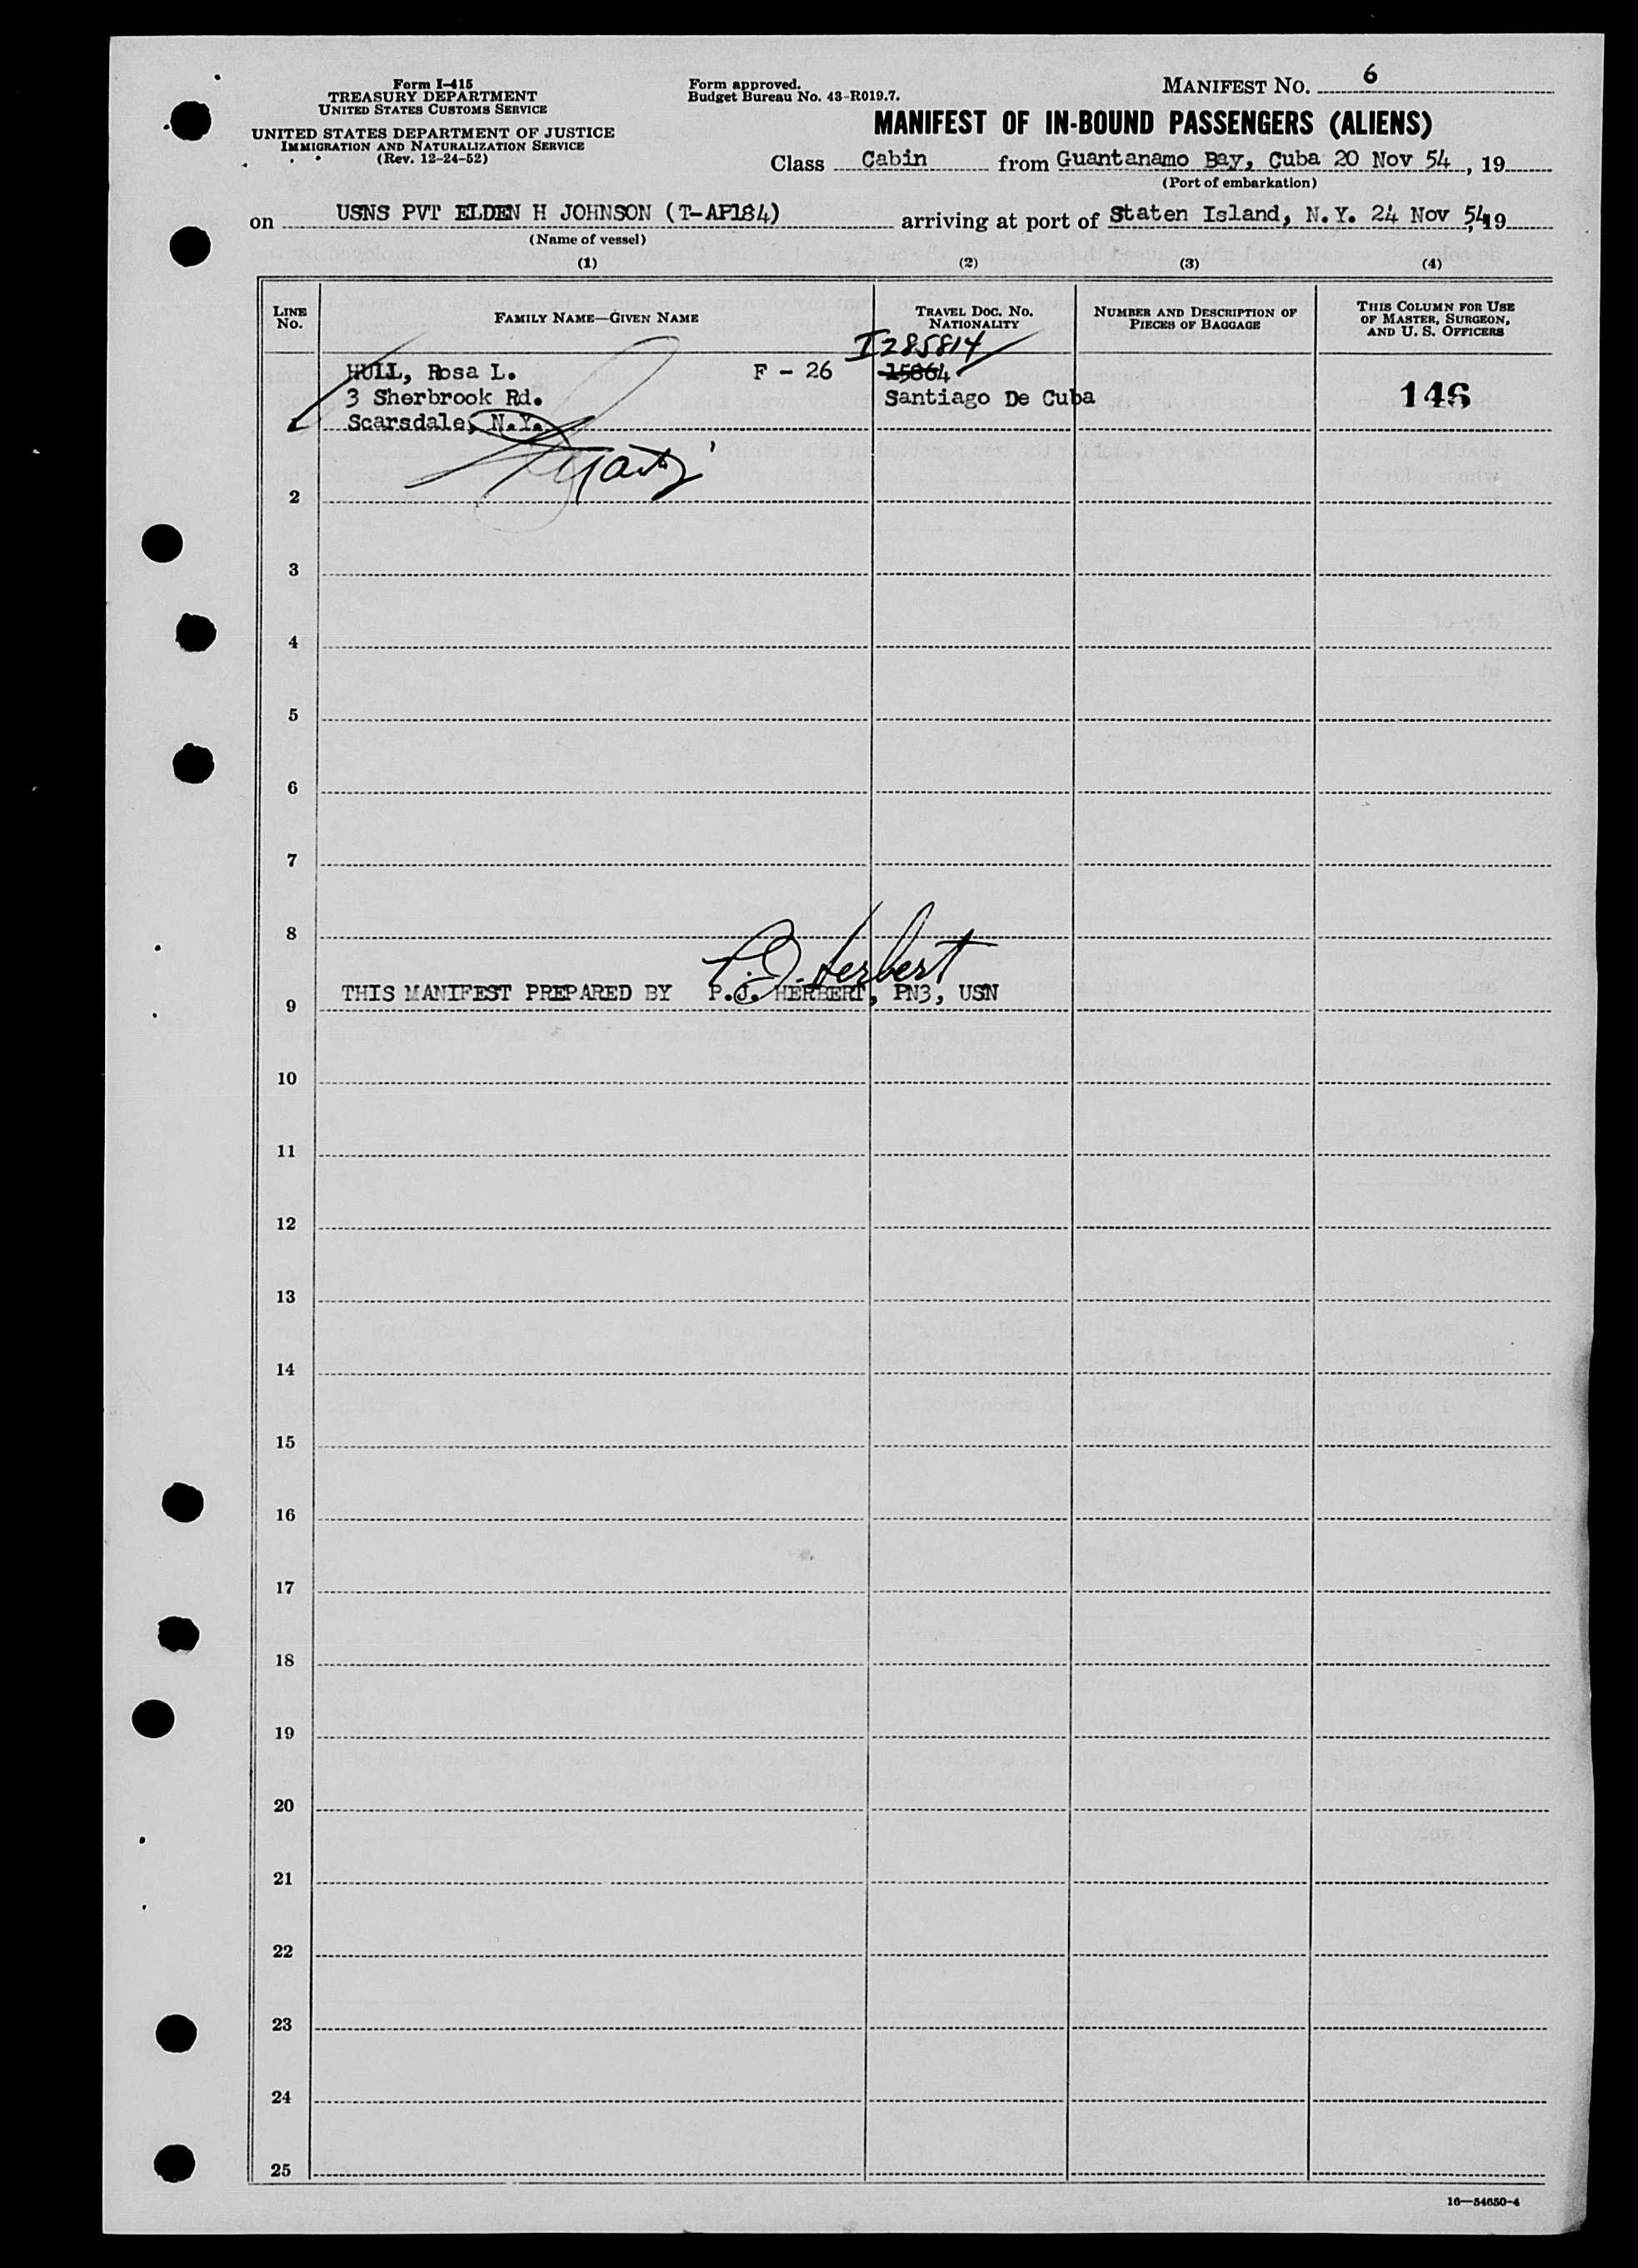 Form I-415
TREASURY DEPARTMENT
UNITED STATES CUSTOMS SERVICE
UNITED STATES DEPARTMENT OF JUSTICE
IMMIGRATION AND NATURALIZATION SERVICE
(Rev. 12-24-52)
Form approved.
Budget Bureau No. 43-R019.7.
MANIFEST NO. 6
MANIFEST OF IN-BOUND PASSENGERS (ALIENS)
Class Cabin from Guantanamo Bay, Cuba 20 Nov 54, 19
(Port of embarkation)
on USNS PVT ELDEN H JOHNSON (T-AP184) arriving at port of Staten Island, N.Y. 24 Nov 54, 19
(Name of vessel)
(1) (2) (3) (4)
LINE No. FAMILY NAME—GIVEN NAME TRAVEL DOC. NO. NATIONALITY NUMBER AND DESCRIPTION OF PIECES OF BAGGAGE THIS COLUMN FOR USE OF MASTER, SURGEON, AND U. S. OFFICERS
I285814
HULL, Rosa L. F - 26 15864
3 Sherbrook Rd. Santiago De Cuba 146
Scarsdale, N.Y.
2
3
4
5
6
7
8
P.J. Herbert
THIS MANIFEST PREPARED BY P.J. HERBERT, PN3, USN
9
10
11
12
13
14
15
16
17
18
19
20
21
22
23
24
25
16—54650-4